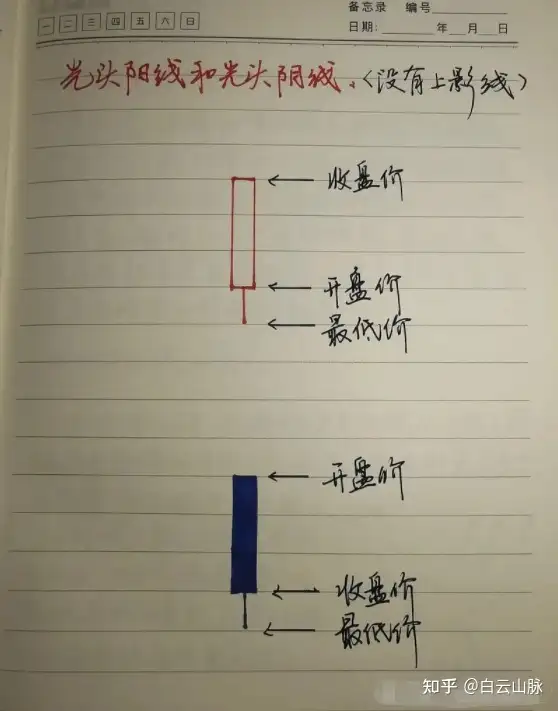 备忘录 编号
一 二 三 四 五 六 日
日期: 年 月 日
光头阳线和光头阴线.(没有上影线)
收盘价
开盘价
最低价
开盘价
收盘价
最低价
知乎 @白云山脉